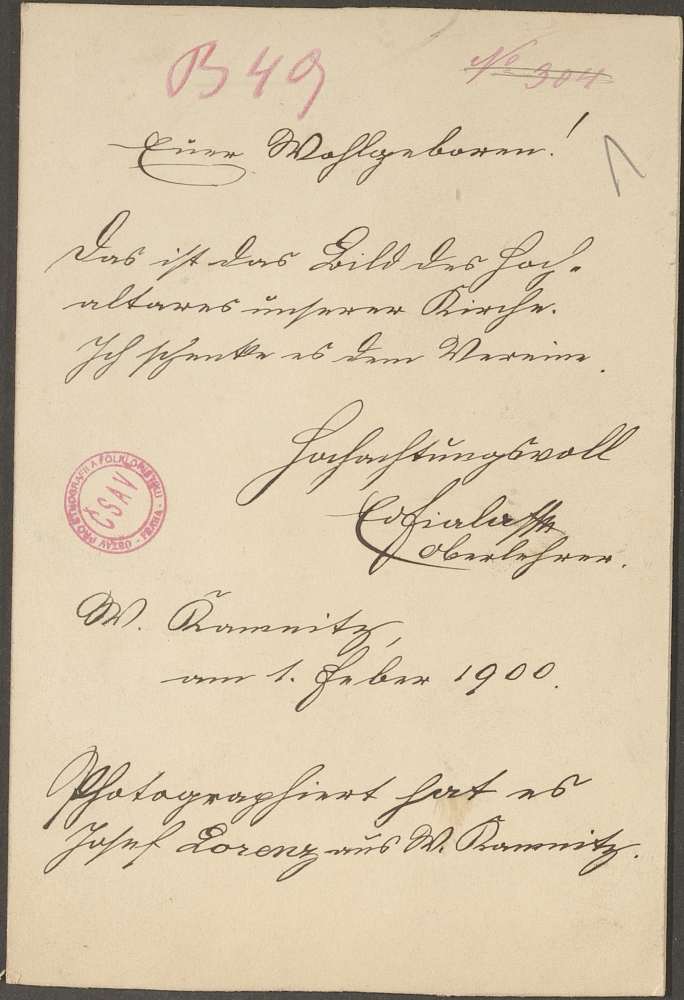 B 49
No 304
Euer Wohlgeboren!
Das ist das Bild des Hoch-
altares unserer Kirche.
Ich schenke es dem Vereine.
Hochachtungsvoll
Ed Fiala
Oberlehrer.
W. Kamnitz,
am 1. Feber 1900.
Photographiert hat es
Josef Lorenz aus W. Kamnitz.
ÚSTAV PRO ETNOGRAFII A FOLKLORISTIKU - PRAHA -
ČSAV